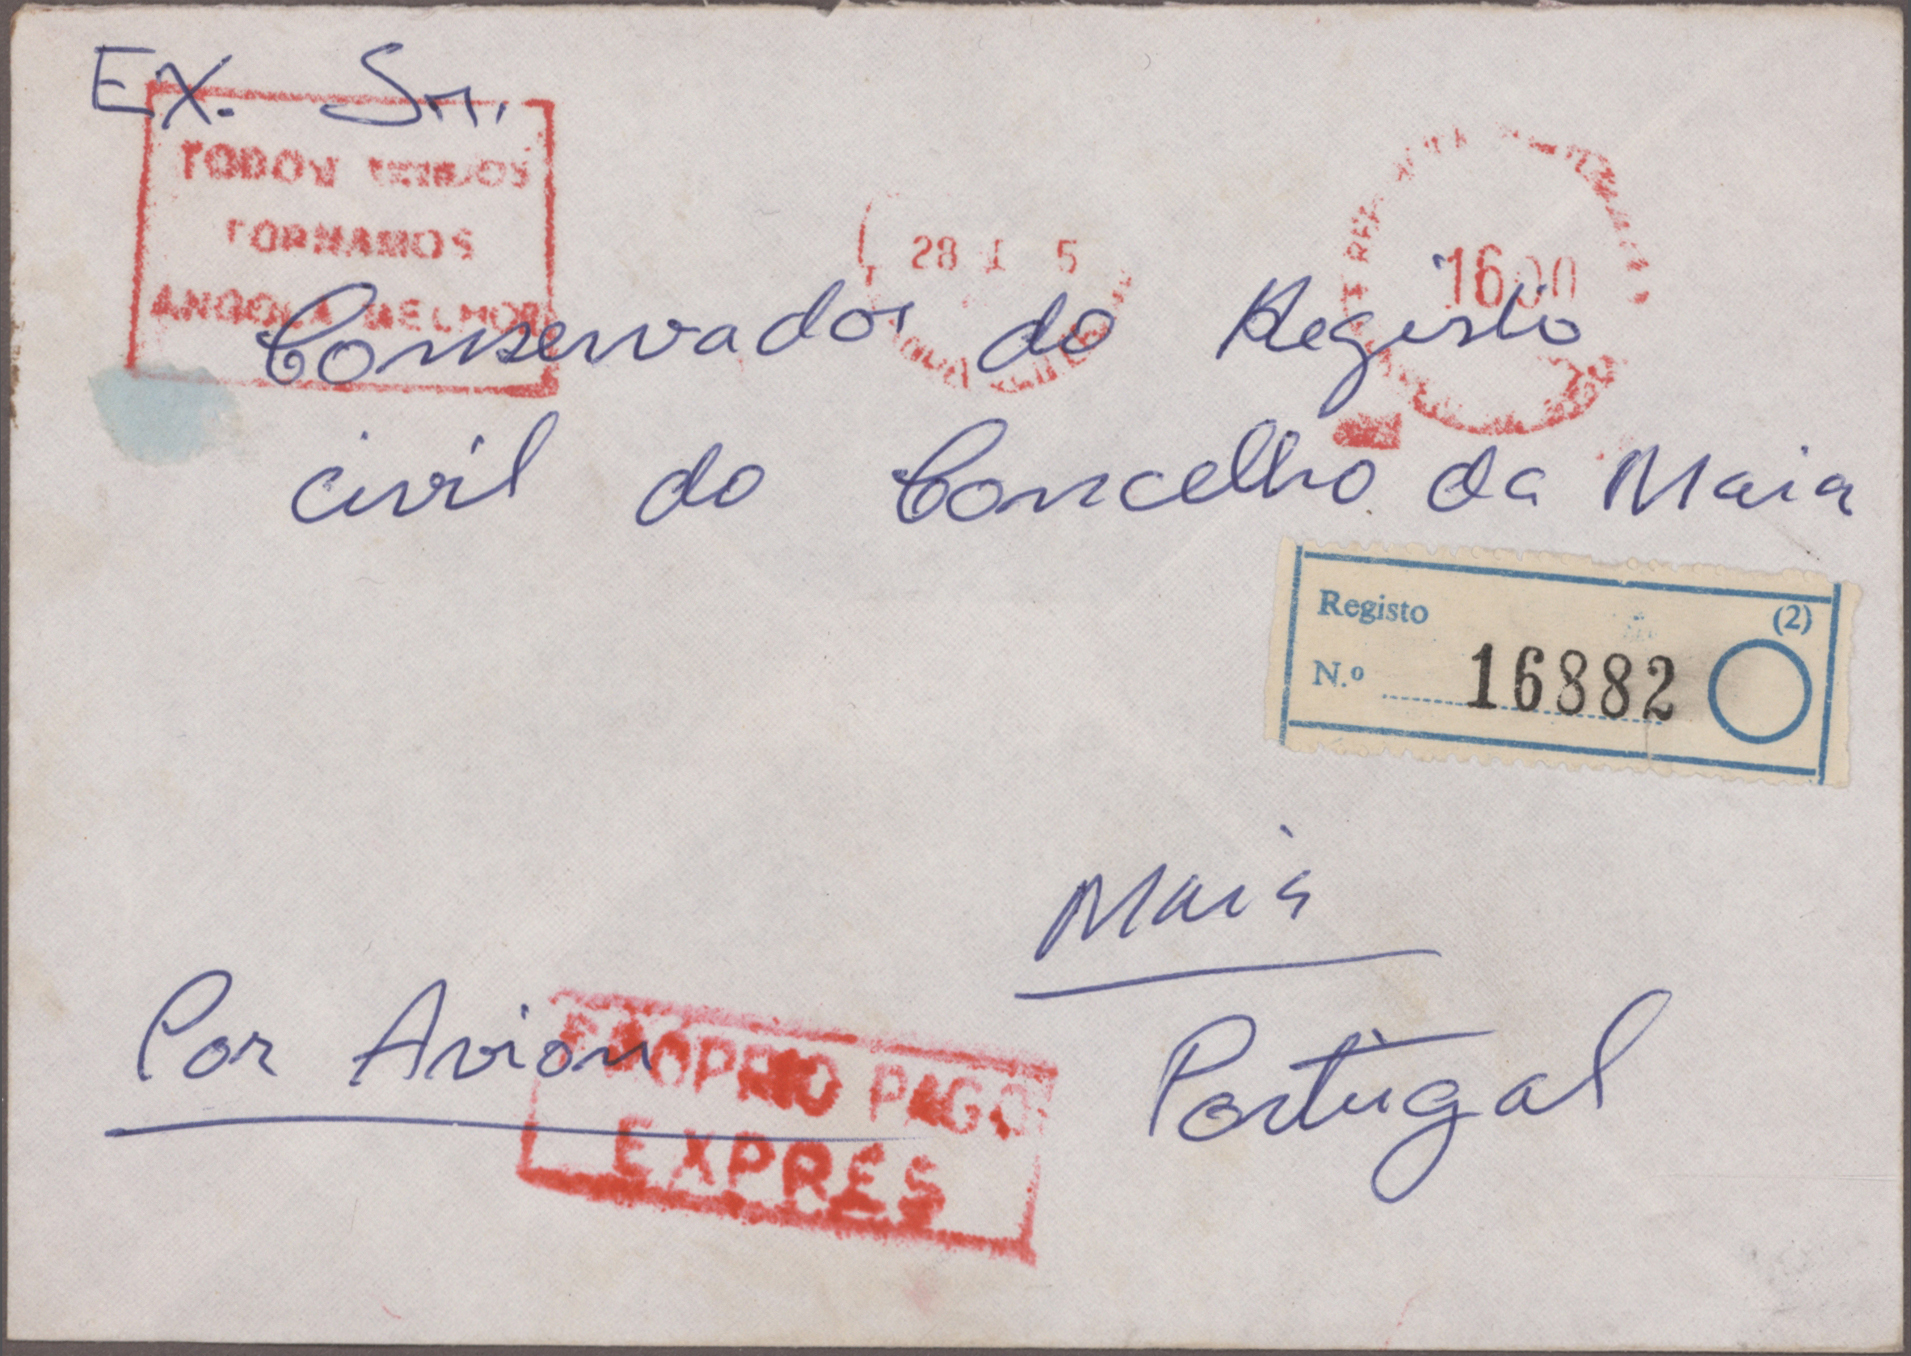 EX. Sr.
TODOS UNIDOS
TORNAMOS
ANGOLA MELHOR
28 1 5
1600
Conservador do Registo
civil do Concelho da Maia
Registo (2)
N.º 16882
Maia
Portugal
Por Avion
PROPRIO PAGO
EXPRES